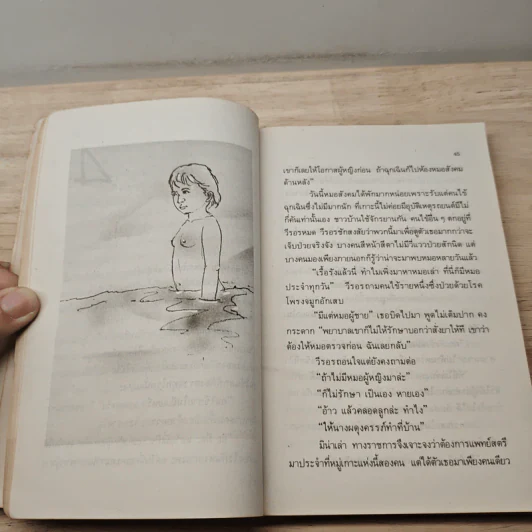 ๔๕
เขาก็เลยให้โอกาสผู้หญิงก่อน ถ้าฉุกเฉินก็ไปห้องหมอสังคม
ด้านหลัง”
วันนี้หมอสังคมได้พักมากหน่อยเพราะรับแต่คนไข้
ฉุกเฉินซึ่งไม่มีมากนัก ที่เกาะนี้ไม่ค่อยมีอุบัติเหตุรถยนต์มีไม่
กี่คันเท่านั้นเอง ชาวบ้านใช้จักรยานกัน คนไข้อื่น ๆ ตกอยู่ที่
วีรอรหมด วีรอรชักสงสัยว่าพวกนี้มาเพื่อดูตัวเธอมากกว่าจะ
เจ็บป่วยจริงจัง บางคนสีหน้าสีตาไม่มีวี่แววป่วยสักนิด แต่
บางคนมองเพียงภายนอกก็รู้ว่าน่าจะมาพบหมอหลายวันแล้ว
“เรื้อรังแล้วนี่ ทำไมเพิ่งมาหาหมอเล่า ที่นี่ก็มีหมอ
ประจำทุกวัน” วีรอรถามคนไข้รายหนึ่งซึ่งป่วยด้วยโรค
โพรงจมูกอักเสบ
“มีแต่หมอผู้ชาย” เธอบิดไปมา พูดไม่เต็มปาก
กระดาก “พยาบาลเขาก็ไม่ให้รักษาบอกว่าสั่งยาให้ที่ เขาว่า
ต้องให้หมอตรวจก่อน ฉันเลยกลับ”
วีรอรถอนใจแต่ยังคงถามต่อ
“ถ้าไม่มีหมอผู้หญิงมาล่ะ”
“ก็ไม่รักษา เป็นเอง หายเอง”
“อ้าว แล้วคลอดลูกล่ะ ทำไง”
“ให้นางผดุงครรภ์ทำที่บ้าน”
มิน่าเล่า ทางราชการจึงเจาะจงว่าต้องการแพทย์สตรี
มาประจำที่หมู่เกาะแห่งนี้สองคน แต่ได้ตัวเธอมาเพียงคนเดียว